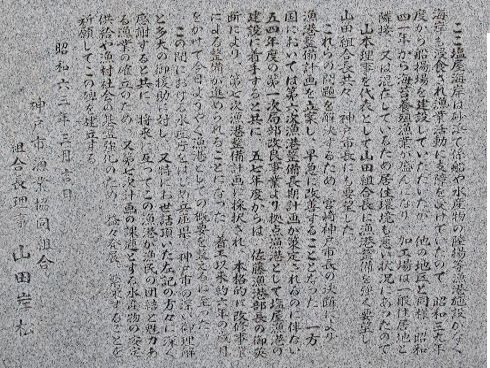 ここ塩屋海岸は砂浜で係船や水産物の陸揚等漁港施設がなく
海岸も浸食され漁業活動に支障を受けていたので 昭和三九年
度から船揚場を建設していただいたが 他の地区と同様 昭和
四一年から海苔養殖漁業が盛んになり 加工場は一般住居地と
隣接 又は混在しているため居住環境も悪い状況にあったので
山本理事を代表として山田組合長に漁港整備を強く要望し
山田組合長共々 神戸市長にも要望した
これらの問題を解決するため 宮崎神戸市長の決断により
漁港整備計画を立案し 早急に改善することとなった 一方
国においては第七次漁港整備長期計画が策定されるのに伴ない
五四年度の第一次局部改良事業より拠点漁港として塩屋漁港の
建設に着手すると共に 五七年度からは 佐藤漁港部長の御英
断により 第七次漁港整備計画に採択され 本格的に改修事業
による整備が進められることになった 着工以来約六年の歳月
をかけて今日ようやく漁港としての概要を整えるに至った
この間における水産庁をはじめ兵庫県 神戸市の深い御理解
と多大の御援助に対し 又特にお世話頂いた左記の方々に深く
感謝すると共に 将来に亙ってこの漁港が漁民の団結と魅力あ
る漁業の確立のため 又第七次計画の課題とする水産物の安定
供給や漁村社会の基盤強化のため 益々発展 繁栄することを
祈願してこの碑を建立する
昭和六三年三月吉日
神戸市漁業協同組合
組合長理事 山田岸松